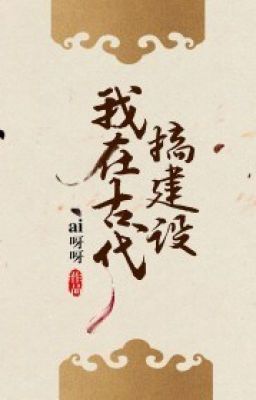 我在古代
搞建设
ai呀呀
作品